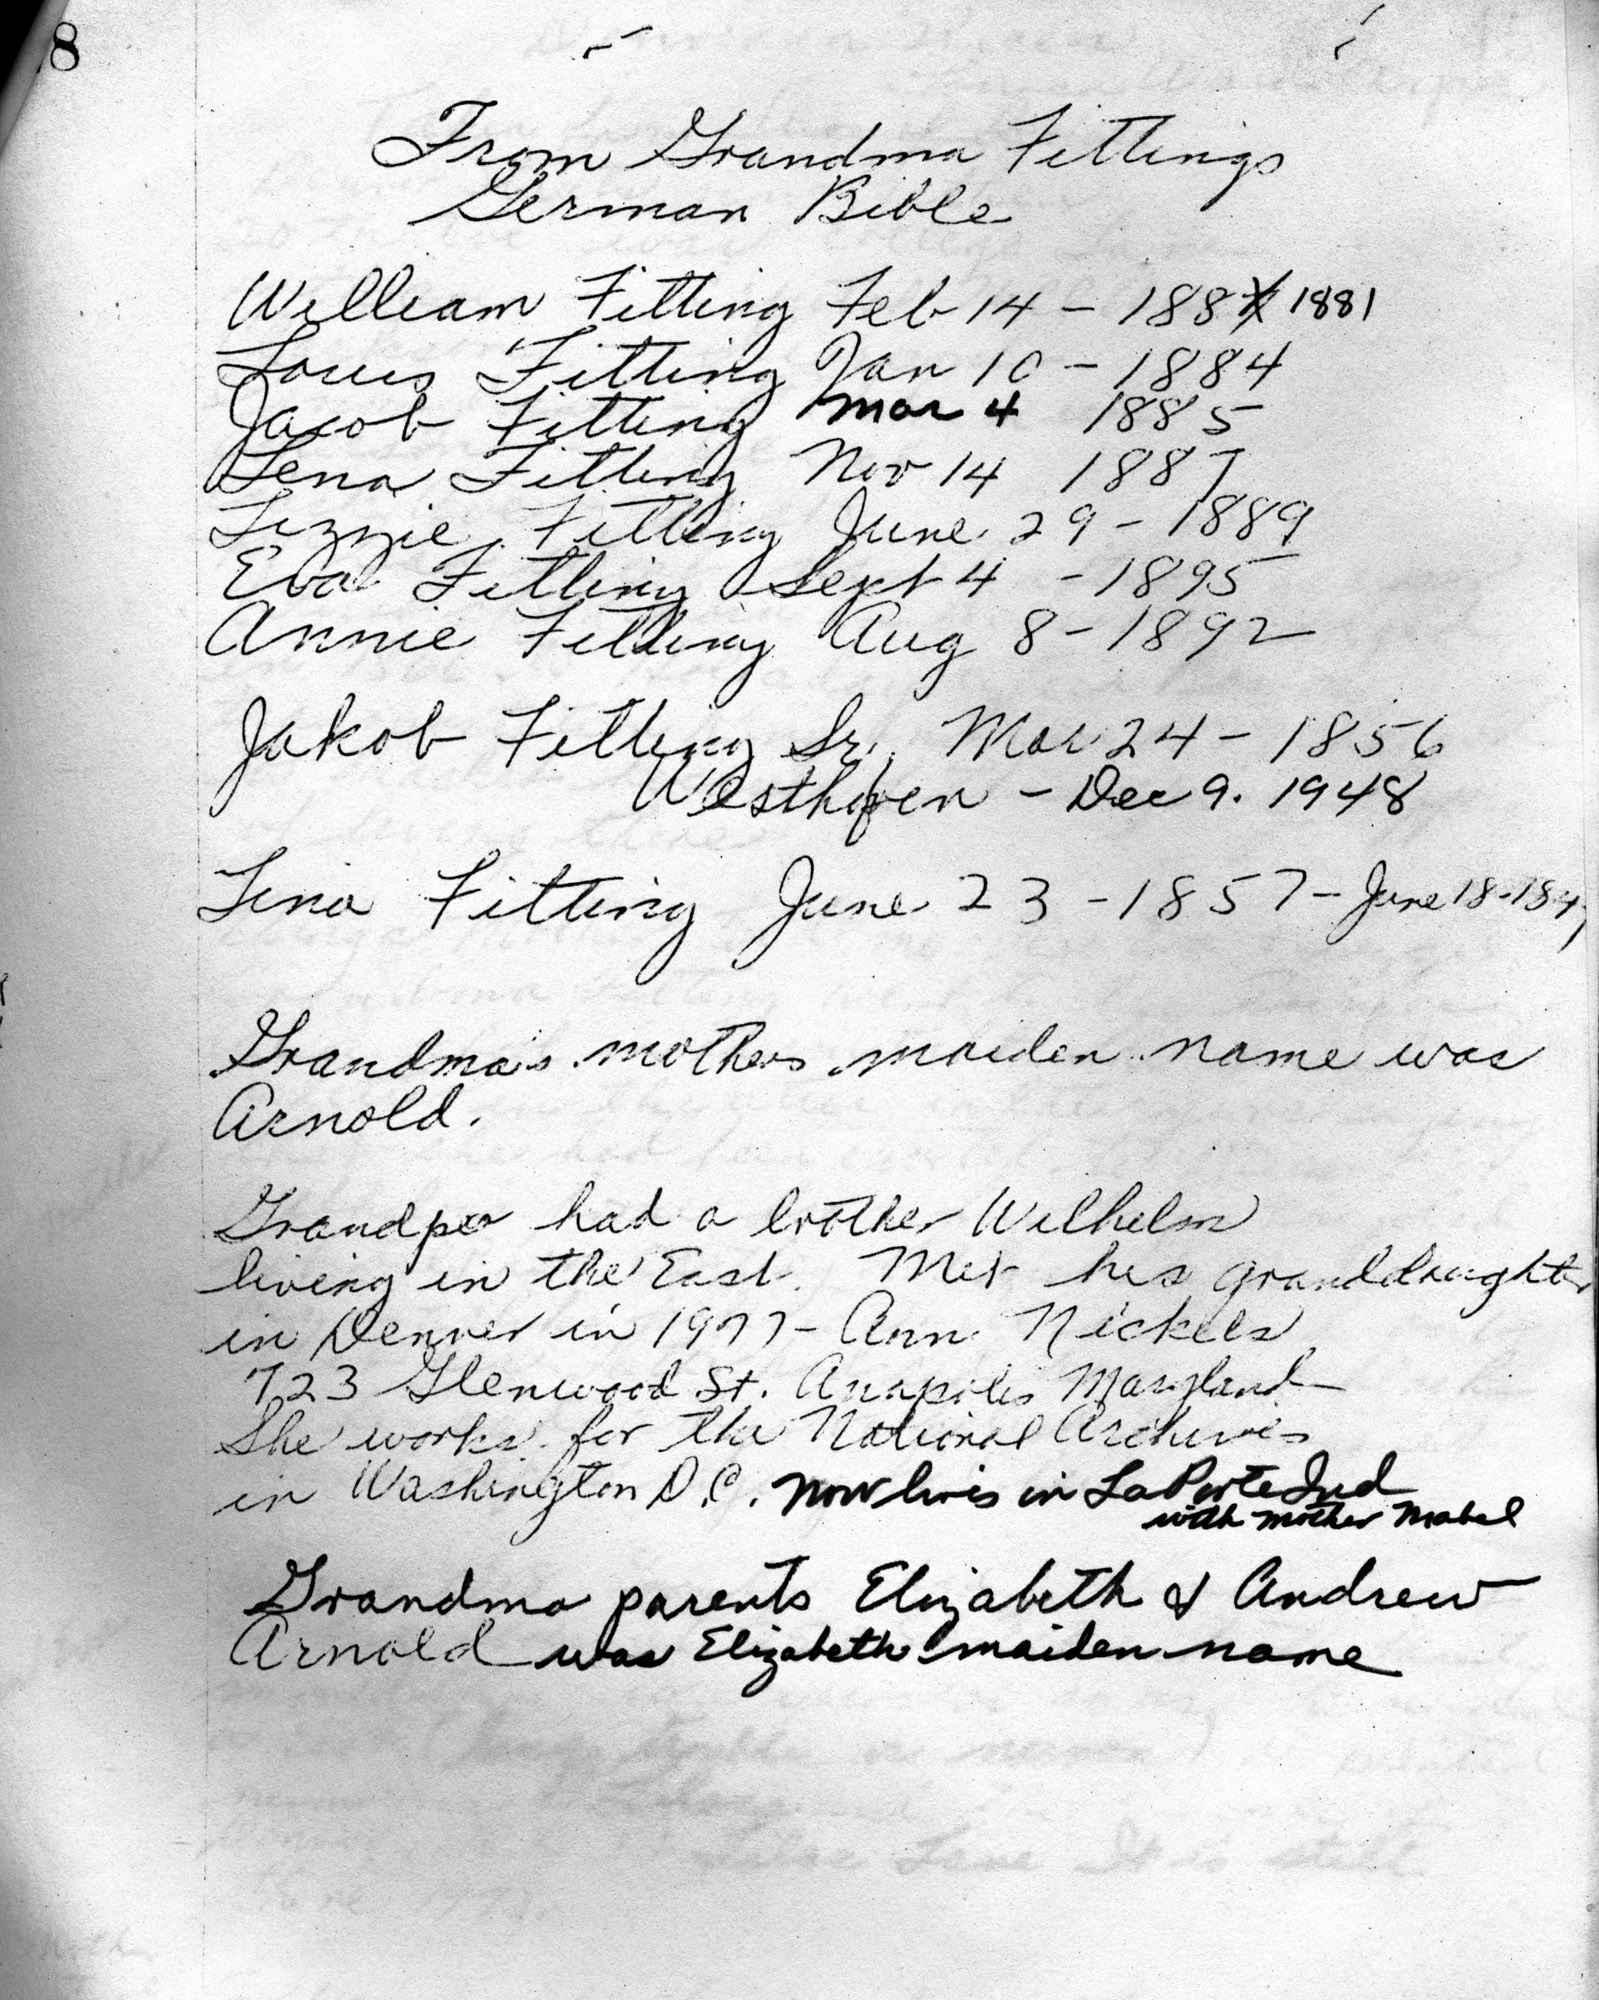 8
From Grandma Fittings
German Bible
William Fitting Feb 14 - 1881
Louis Fitting Jan 10 - 1884
Jacob Fitting Mar 4 1885
Lena Fitting Nov 14 1887
Lizzie Fitting June 29 - 1889
Eva Fitting Sept 4 - 1895
Annie Fitting Aug 8 - 1892
Jakob Fitting Sr. Mar 24 - 1856
Westhofen - Dec 9. 1948
Lena Fitting June 23 - 1857 - June 18 -
Grandma's mothers maiden name was
Arnold.
Grandpa had a brother Wilhelm
living in the East. Met his granddaughter
in Denver in 1977 - Ann Nickels
723 Glenwood St. Anapolis Maryland
She works for the National Archives
in Washington D.C. Now lives in La Porte Ind
with mother Mabel
Grandma parents Elizabeth & Andrew
Arnold was Elizabeth maiden name